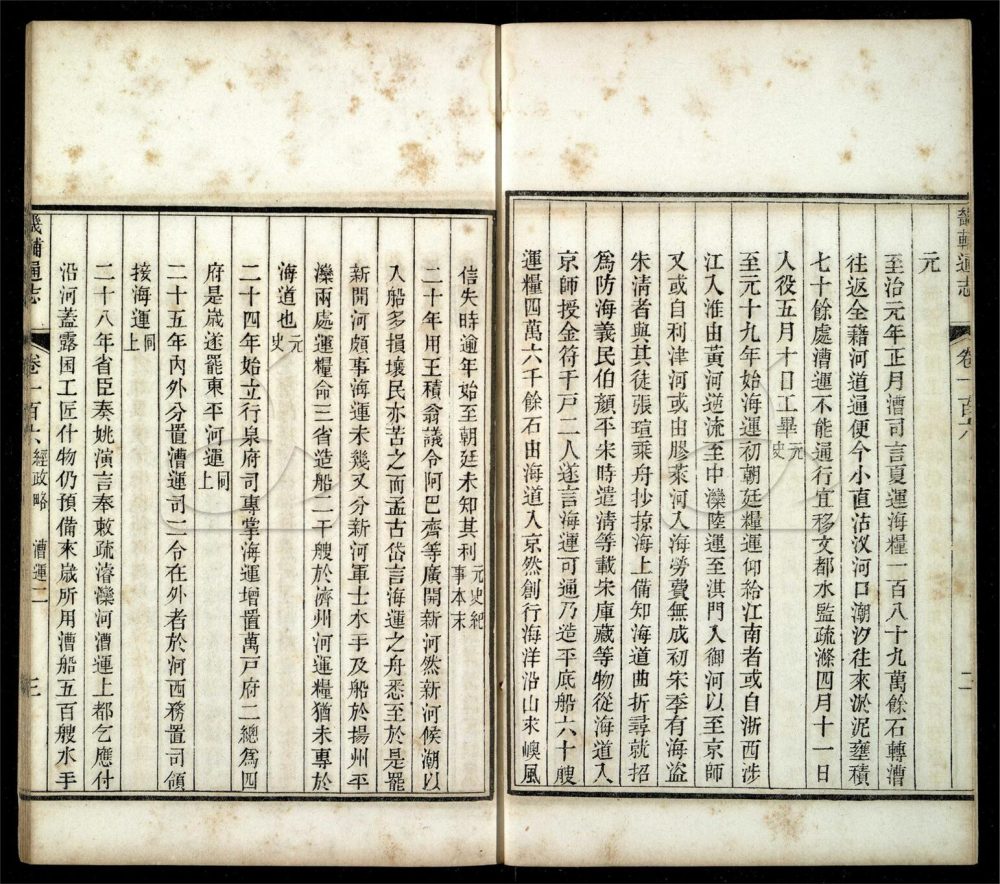 畿輔通志 卷一百六 二
元
至治元年正月漕司言夏運海糧一百八十九萬餘石轉漕
往返全藉河道通便今小直沽汊河口潮汐往來淤泥壅積
七十餘處漕運不能通行宜移文都水監疏滌四月十一日
入役五月十日工畢元史
至元十九年始海運初朝廷糧運仰給江南者或自浙西涉
江入淮由黃河逆流至中灤陸運至淇門入御河以至京師
又或自利津河或由膠萊河入海勞費無成初朱季有海盜
朱清者與其徒張瑄乘舟抄掠海上備知海道曲折尋就招
為防海義民伯顏平宋時遣清等載宋庫藏等物從海道入
京師授金符千戶二人遂言海運可通乃造平底船六十艘
運糧四萬六千餘石由海道入京然創行海洋沿山求嶼風
信失時逾年始至朝廷未知其利元史紀事本末
二十年用王積翁議令阿巴齊等廣開新河然新河候潮以
入船多損壞民亦苦之而孟古岱言海運之舟悉至於是罷
新開河頗事海運未幾又分新河軍士水手及船於揚州平
灤兩處運糧命三省造船二千艘於濟州河運糧猶未專於
海道也元史
二十四年始立行泉府司專掌海運增置萬戸府二總為四
府是歲遂罷東平河運同上
二十五年內外分置漕運司二令在外者於河西務置司領
接海運同上
二十八年省臣奏姚演言奉敕疏濬灤河漕運上都乞應付
沿河蓋露囷工匠什物仍預備來歲所用漕船五百艘水手
畿輔通志 卷一百六 經政略 漕運二 三